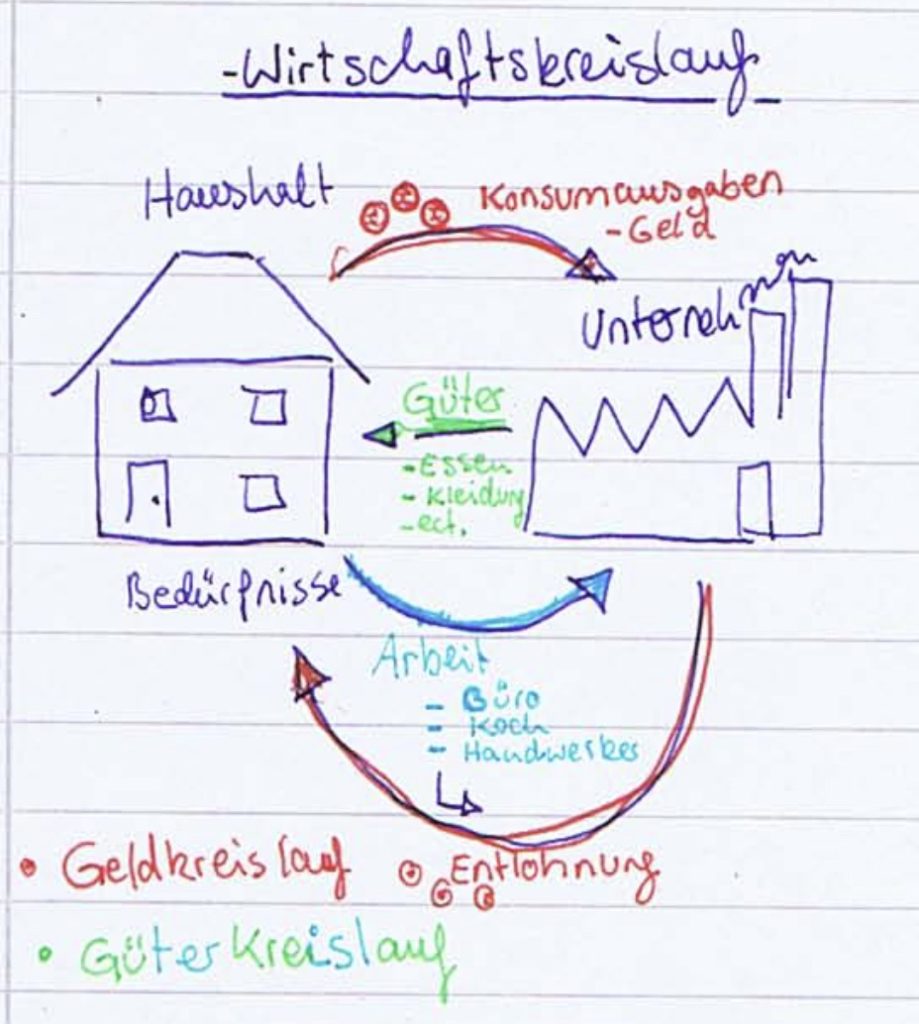 -Wirtschaftskreislauf-
Haushalt
Konsumausgaben
-Geld
Unterneh
Güter
-Essen
- Kleidung
-ect.
Bedürfnisse
Arbeit
- Büro
- Koch
- Handwerker
• Geldkreislauf
Entlohnung
• Güterkreislauf